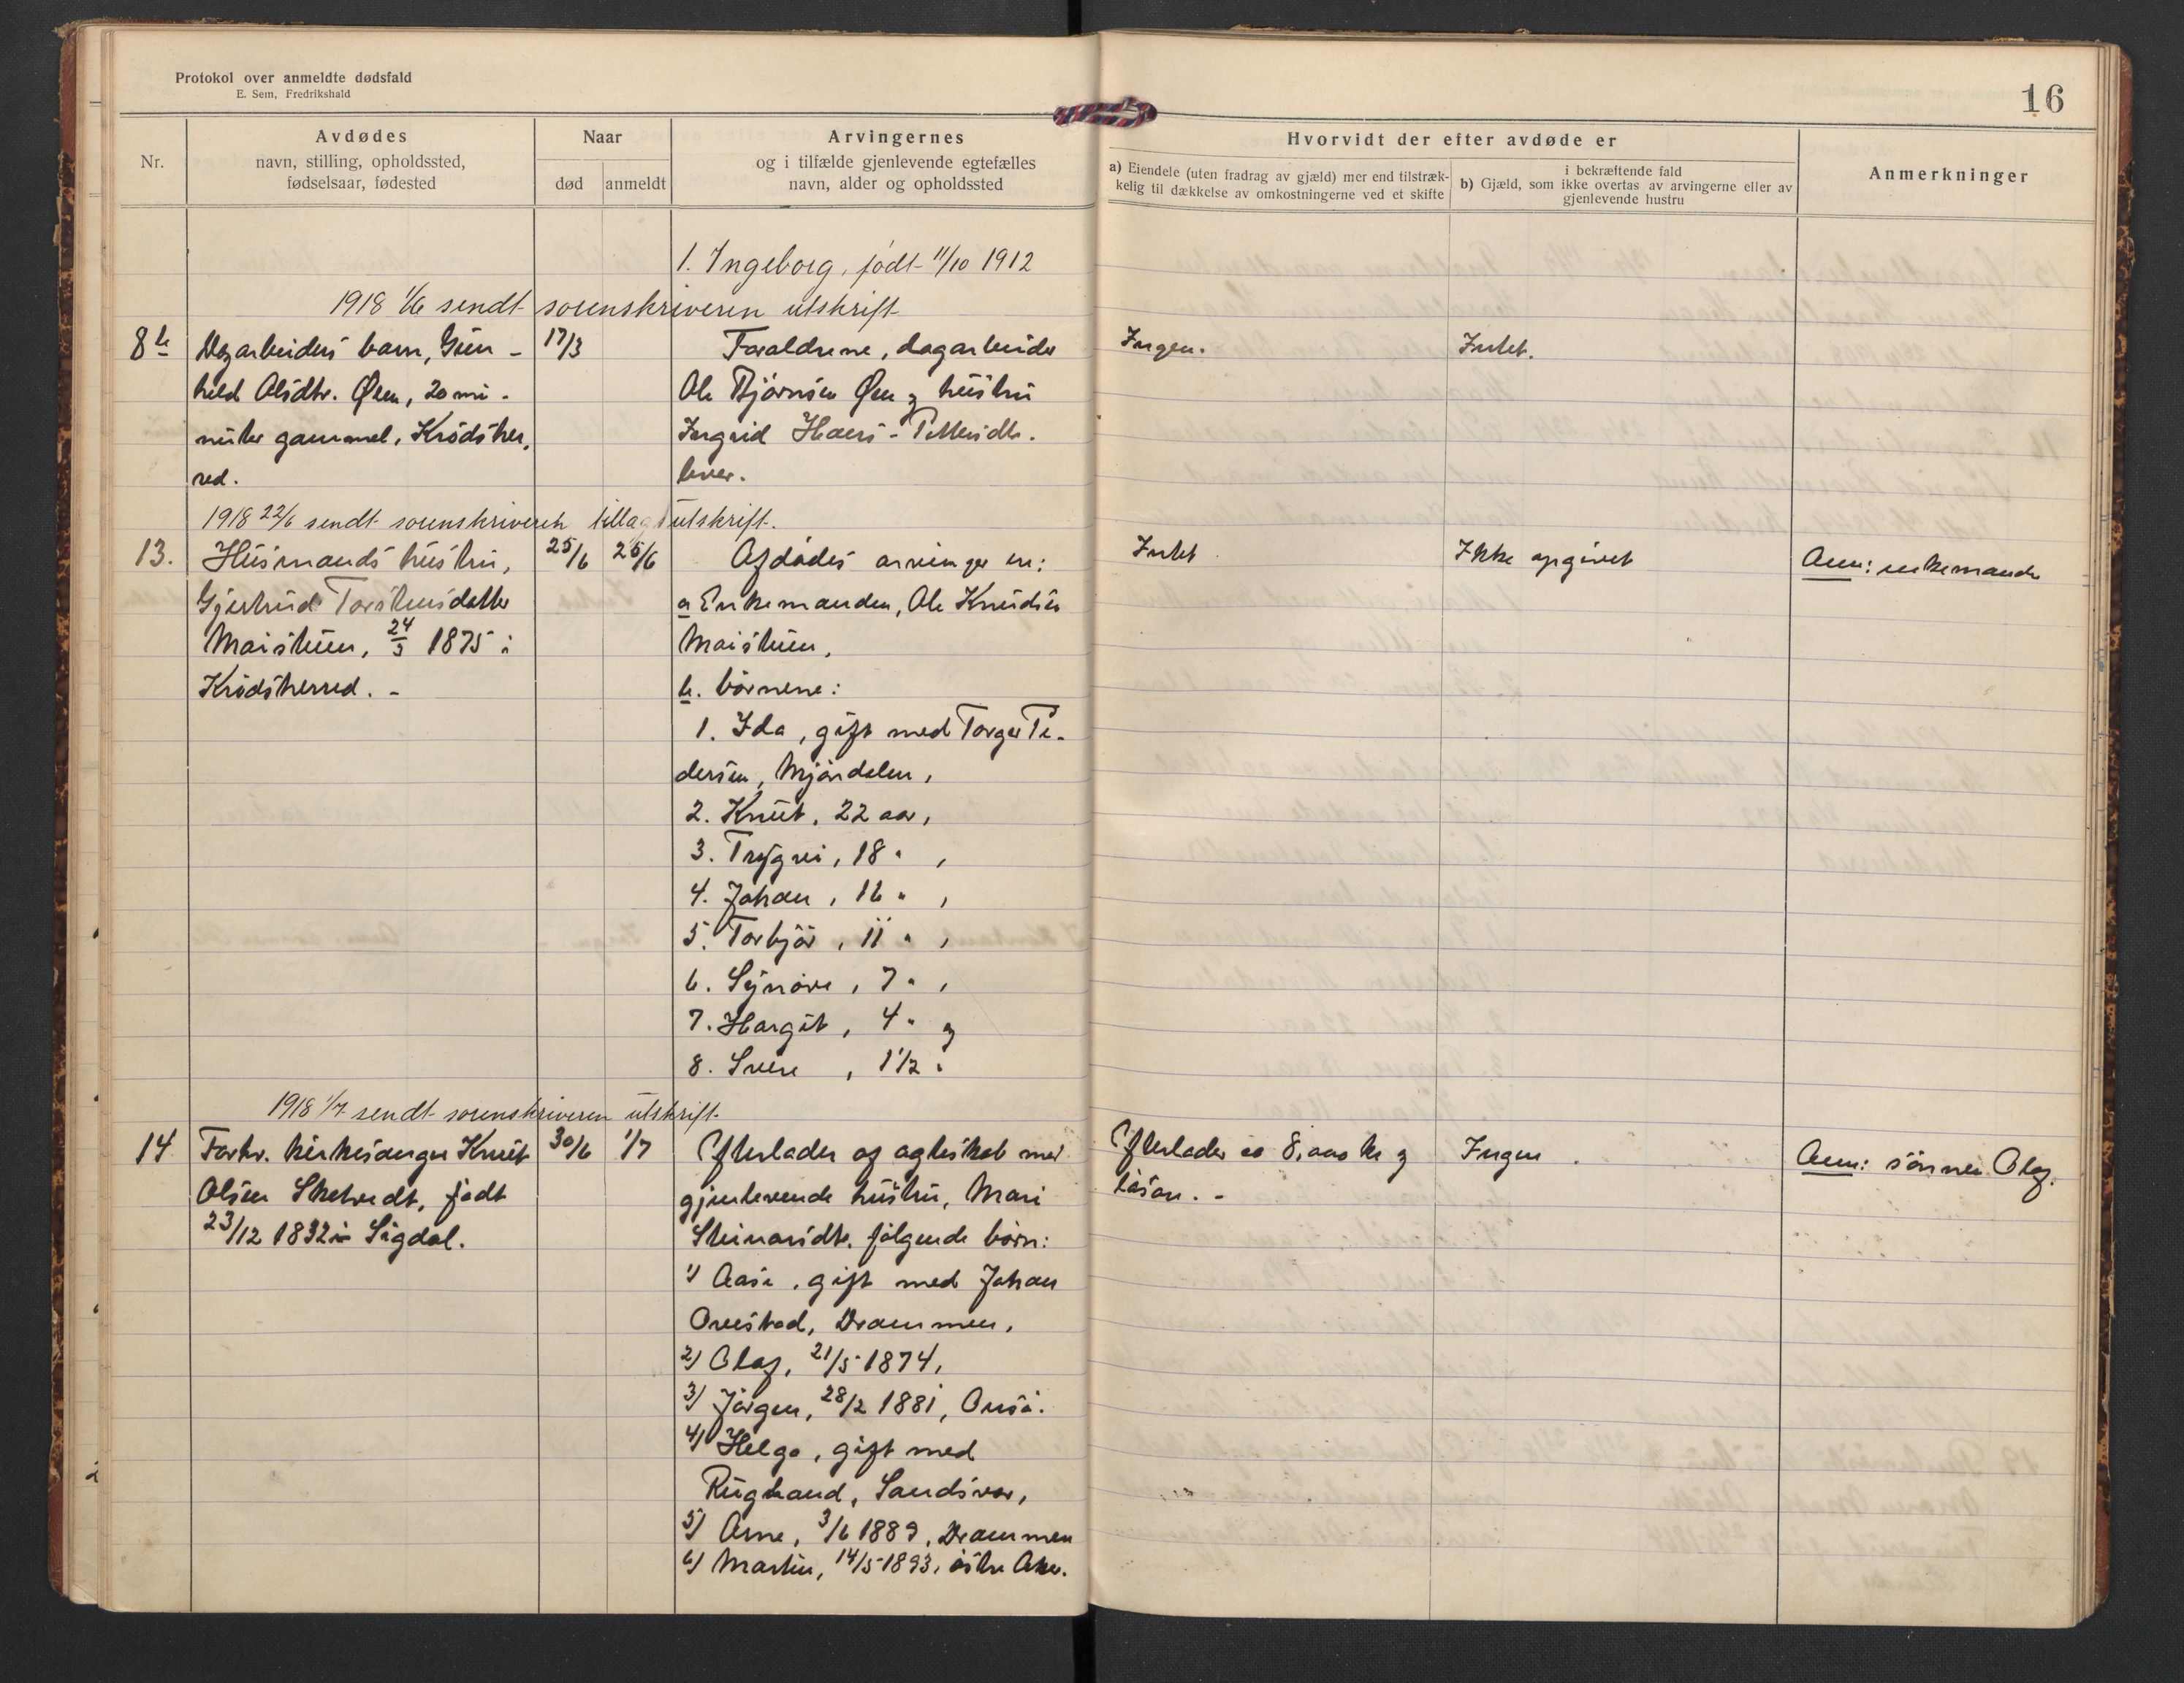 Protokol over anmeldte dødsfald
E. Sem, Fredrikshald
16
Nr.
Avdødes
navn, stilling, opholdssted,
fødselsaar, fødested
Naar
død anmeldt
Arvingernes
og i tilfælde gjenlevende egtefælles
navn, alder og opholdssted
Hvorvidt der efter avdøde er
a) Eiendele (uten fradrag av gjæld) mer end tilstræk-
kelig til dækkelse av omkostningerne ved et skifte
i bekræftende fald
b) Gjæld, som ikke overtas av arvingerne eller av
gjenlevende hustru
Anmerkninger
1. Ingeborg, født 11/10 1912
1918 1/6 sendt sorenskriveren utskrift
8 b Dagarbeiders barn, Gun-
hild Olsdtr. Øen, 20 mi-
nuter gammel, Krødsher,
red.
17/3
Forældrene, dagarbeider
Ole Bjørnsen Øen og hustru
Ingrid Pettersdtr.
lever.
Ingen.
Intet.
1918 22/6 sendt sorenskriveren tillægsutskrift.
13. Husmands hustru,
Gjertrud Torstensdatter
Maistuen, 24/3 1875 i
Krødsherred. -
25/6 25/6
Afdødes arvinger er:
a Enkemanden, Ole Knudsen
Maistuen,
b. børnene:
1. Ida, gift med Torger Pe-
dersen, Mjøndalen,
2. Knut, 22 aar,
3. Trygve, 18 " ,
4. Johan, 16 " ,
5. Torbjør, 11 " ,
6. Synøve, 7 " ,
7. Margit, 4 " og
8. Svere, 1 1/2 "
Intet
Ikke opgivet
Anm: enkemanden
1918 1/7 sendt sorenskriveren utskrift.
14 Forhv. kirkesanger Knut
Olsen Skatvedt, født
23/12 1832 i Sigdal.
30/6 1/7
Efterlader af ægteskab med
gjenlevende hustru, Mari
Steinarsdtr. følgende børn:
1) Aase, gift med Johan
Ovestad, Drammen,
2) Olaf, 21/5 1874,
3) Jørgen, 28/2 1881,
4) Helga, gift med
Sandsvær,
5) Arne, 3/6 1889, Drammen
6) Martin, 14/5 1893, østre Aker.
Efterlader ca 8,000 kr og
løsøre. -
Ingen .
Anm: sønnen Olaf.